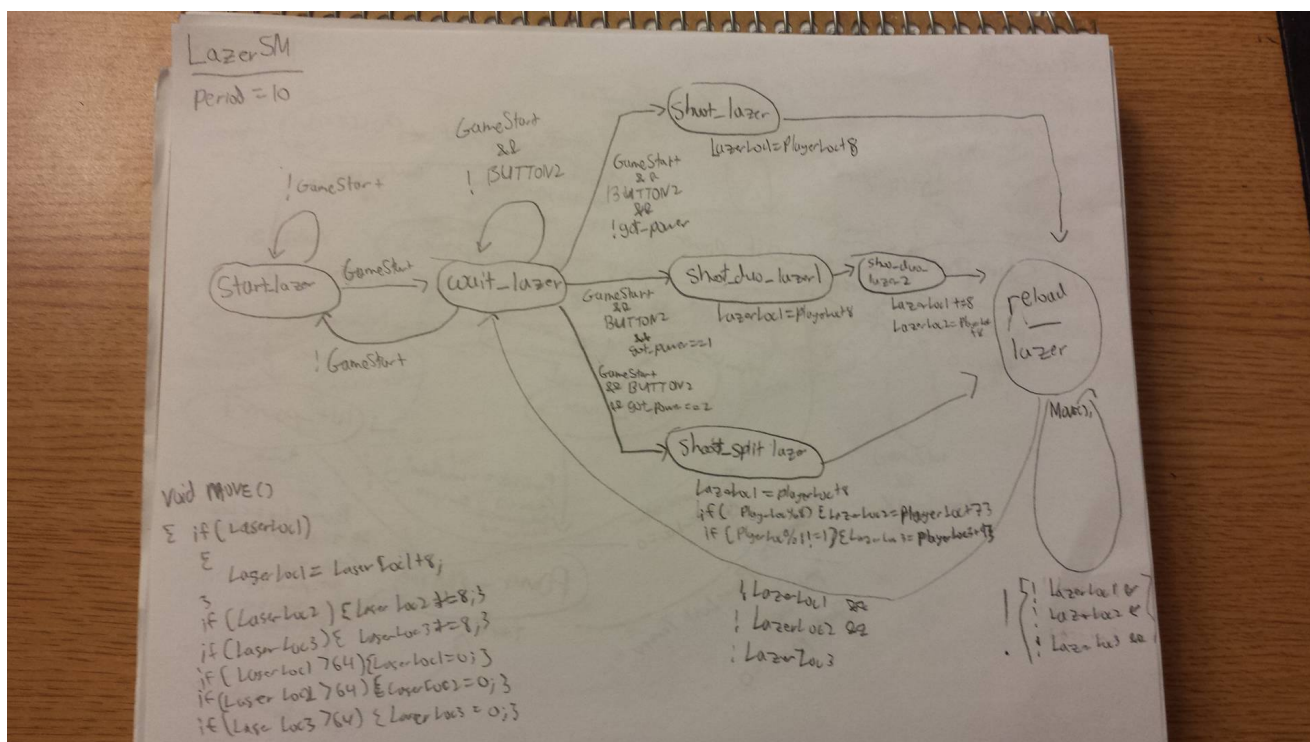 LazerSM
Period = 10
GameStart
&&
! BUTTON2
! GameStart
Start_lazer
GameStart
! GameStart
wait_lazer
GameStart
&&
BUTTON2
&&
!got_power
Shoot_lazer
LazerLoc1=PlayerLoc+8
GameStart
&&
BUTTON2
&&
got_power==1
Shoot_duo_lazer1
LazerLoc1=PlayerLoc+8
shoo_duo_
lazer2
LazerLoc1+=8
LazerLoc2=PlayerLoc
+8
GameStart
&& BUTTON2
&& got_power==2
Shoot_split lazer
LazerLoc1 = playerLoc+8
if( PlayerLoc%8) {LazerLoc2=PlayerLoc+7}
if (PlayerLoc% !=1){LazerLoc3=PlayerLoc+9}
reload
lazer
Move();
! LazerLoc1 &&
! LazerLoc2 &&
! LazerLoc3
! {! LazerLoc1 &
! LazerLoc2 &
! LazerLoc3 &&
void MOVE()
{ if (LaserLoc1)
{
LaserLoc1 = LaserLoc1+8;
}
if (LaserLoc2) {LaserLoc2+=8;}
if (LaserLoc3) { LaserLoc3+=8;}
if ( LaserLoc1 >64) {LaserLoc1=0;}
if (Laser Loc2 >64) {LaserLoc2=0;}
if (Laser Loc3 >64) {LaserLoc3 = 0;}